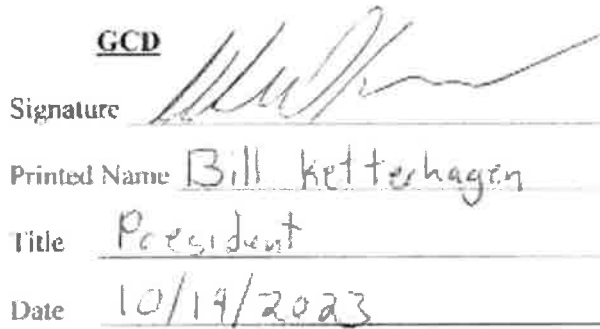 GCD
Signature
Printed Name Bill Ketterhagen
Title President
Date 10/19/2023